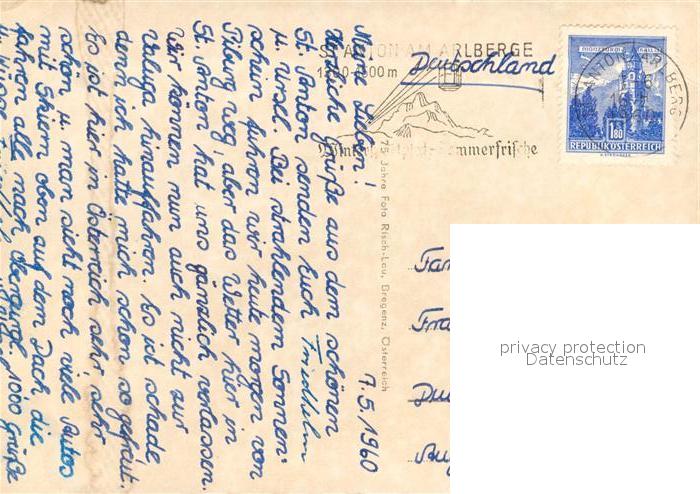 7.5.1960
Meine Lieben!
Herzliche Grüße aus dem schönen
St. Anton senden Euch Friedhelm
u. Ursel. Bei strahlendem Sonnen-
schein fuhren wir heute morgen von
weg, aber das Wetter hier in
St. Anton hat uns gänzlich verlassen.
Wir können nun auch nicht zur
Valuga hinauffahren. Es ist schade,
denn ich hatte mich schon so gefreut.
Es ist hier in Österreich sehr
schön u. man sieht noch viele Autos
mit Skiern oben auf dem Dach, die
fahren alle nach Obergurgl. 1000 Grüße
u. Küsse
ST. ANTON AM ARLBERGE
1300-1500m
Wintersportplatz-Sommerfrische
Deutschland
ST. ANTON AM ARLBERG
1.80
REPUBLIK ÖSTERREICH
75 Jahre Foto Risch-Lau, Bregenz, Österreich
privacy protection
Datenschutz